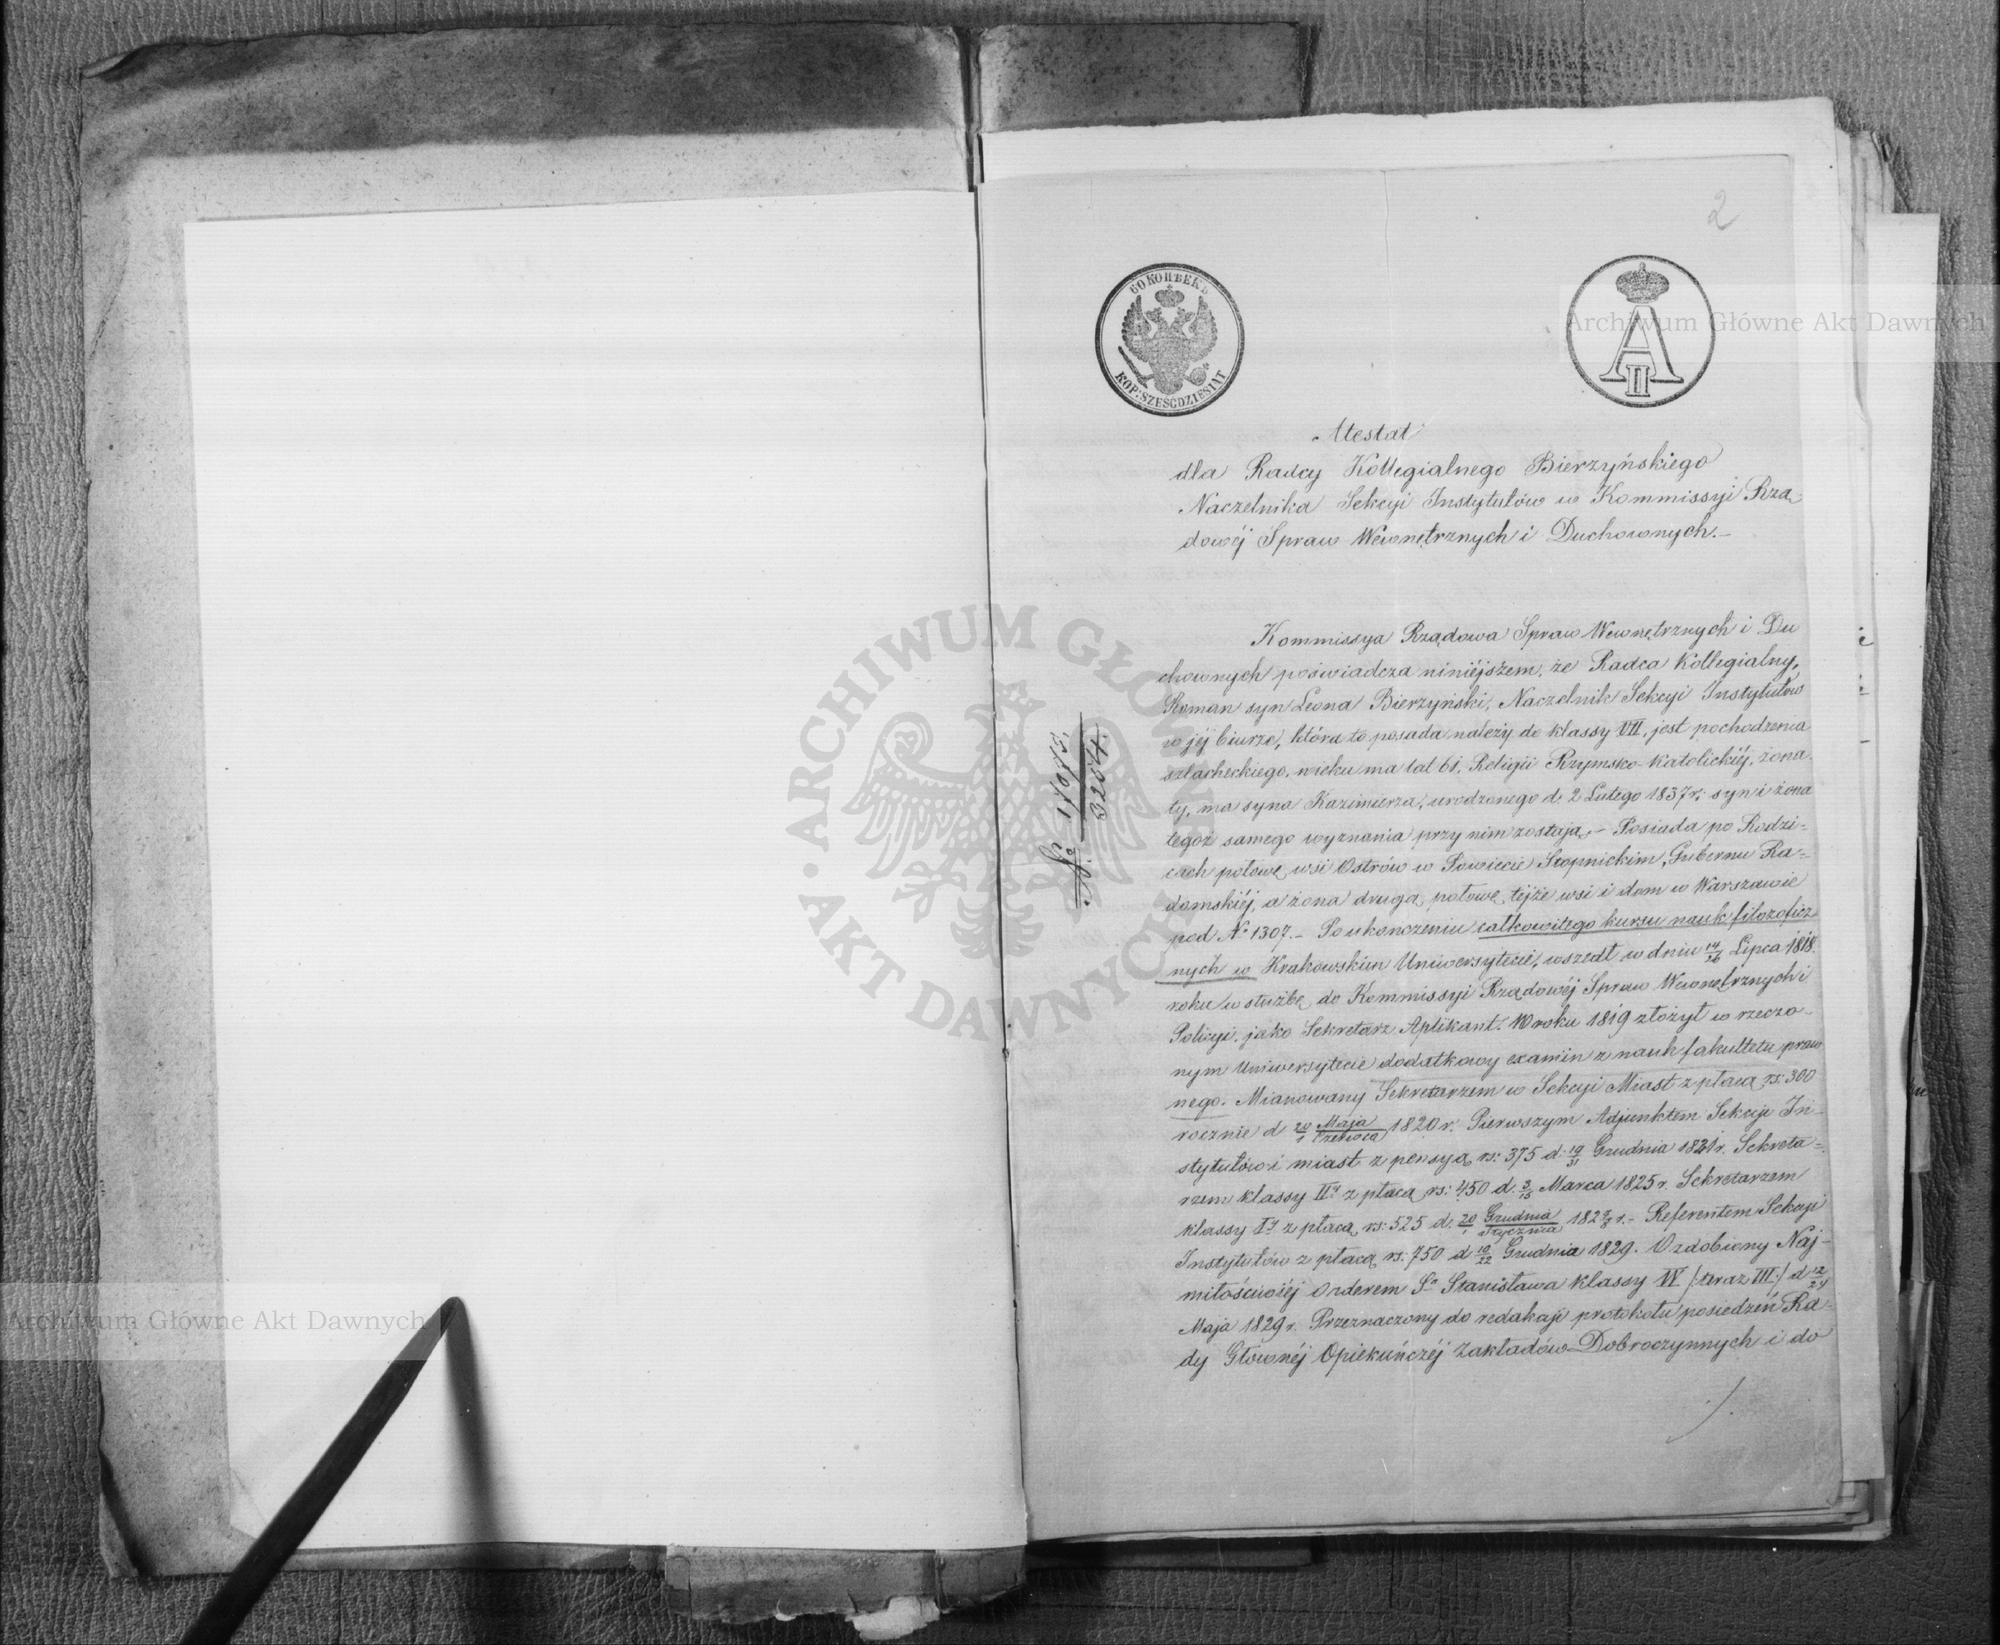 2
60 КОПѢЕКЪ
KOP: SZEŚĆDZIESIĄT
A II
Archiwum Główne Akt Dawnych
Atestat
dla Radcy Kollegialnego Bierzyńskiego
Naczelnika Sekcyi Instytutów w Kommissyi Rzą-
dowéj Spraw Wewnętrznych i Duchownych.—
Kommissya Rządowa Spraw Wewnętrznych i Du
chownych poświadcza niniéjszem, że Radca Kollegialny,
Roman syn Leona Bierzyński, Naczelnik Sekcyi Instytutów
w jéj biurze, która to posada należy do klassy VII, jest pochodzenia
szlacheckiego, wieku ma lat 61, Religii Rzymsko-Katolickiéj, żona-
ty, ma syna Kazimierza, urodzonego d. 2 Lutego 1837 r; syn i żona
tegoż samego wyznania przy nim zostają.— Posiada po Rodzi=
cach połowę wsi Ostrów w Powiecie Stopnickim, Gubernii Ra=
domskiéj, a żona drugą połowę tejże wsi i dom w Warszawie
pod No 1307.— Po ukończeniu całkowitego kursu nauk filozoficz
nych w Krakowskim Uniwersytecie, wszedł w dniu 14/26 Lipca 1818.
roku w służbę do Kommissyi Rządowéj Spraw Wewnętrznych i
Policyi, jako Sekretarz Aplikant. W roku 1819 złożył w rzeczo-
nym Uniwersytecie dodatkowy examin z nauk fakultetu praw
nego. Mianowany Sekretarzem w Sekcyi Miast z płacą rs: 300
rocznie d 20 Maja/1 Czerwca 1820 r. Pierwszym Adjunktem Sekcyi In-
stytutów i miast z pensyą rs: 375 d: 19/31 Grudnia 1821 r. Sekreta=
rzem klassy IIéj z płacą rs: 450 d. 3/15 Marca 1825 r. Sekretarzem
klassy Iéj z płacą rs: 525 d. 20 Grudnia/1 Stycznia 182 7/8 r.— Referentem Sekcyi
Instytutów z płacą rs: 750 d 10/22 Grudnia 1829. Ozdobiony Naj-
miłościwiéj Orderem Sgo Stanisława klassy IV /:teraz III:/ d 12/24
Maja 1829 r. Przeznaczony do redakcyi protokołu posiedzeń Ra-
dy Głównéj Opiekuńczéj Zakładów Dobroczynnych i do
./.
No
3254.
ARCHIWUM GŁÓWNE
AKT DAWNYCH
Archiwum Główne Akt Dawnych